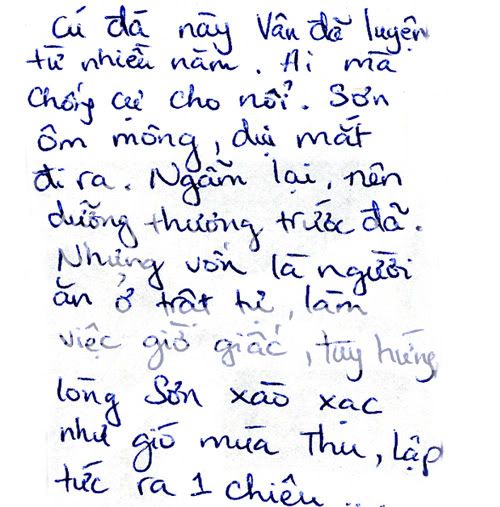 Cú đá này Vân đã luyện
từ nhiều năm. Ai mà
chống cự cho nổi. Sơn
ôm mông, dụi mắt
đi ra. Ngẫm lại, nên
dưỡng thương trước đã.
Nhưng vốn là người
ăn ở trật tự, làm
việc giờ giấc, tùy hứng,
lòng Sơn xào xạc
như gió mùa Thu, lập
tức ra 1 chiêu ...